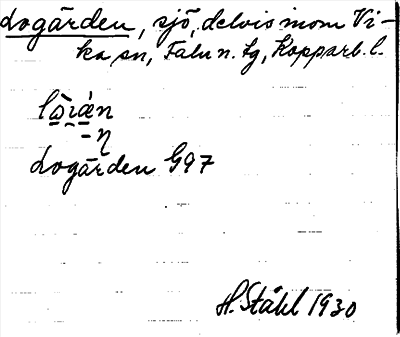 Logården, sjö, delvis inom Vi-
ka sn, Falu n. tg, Kopparb. l.
Logården G97
H. Ståhl 1930